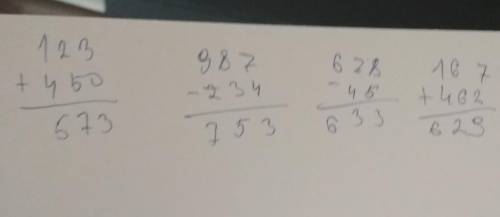 123 987 678 167
+450 -234 -45 +462
573 753 633 629